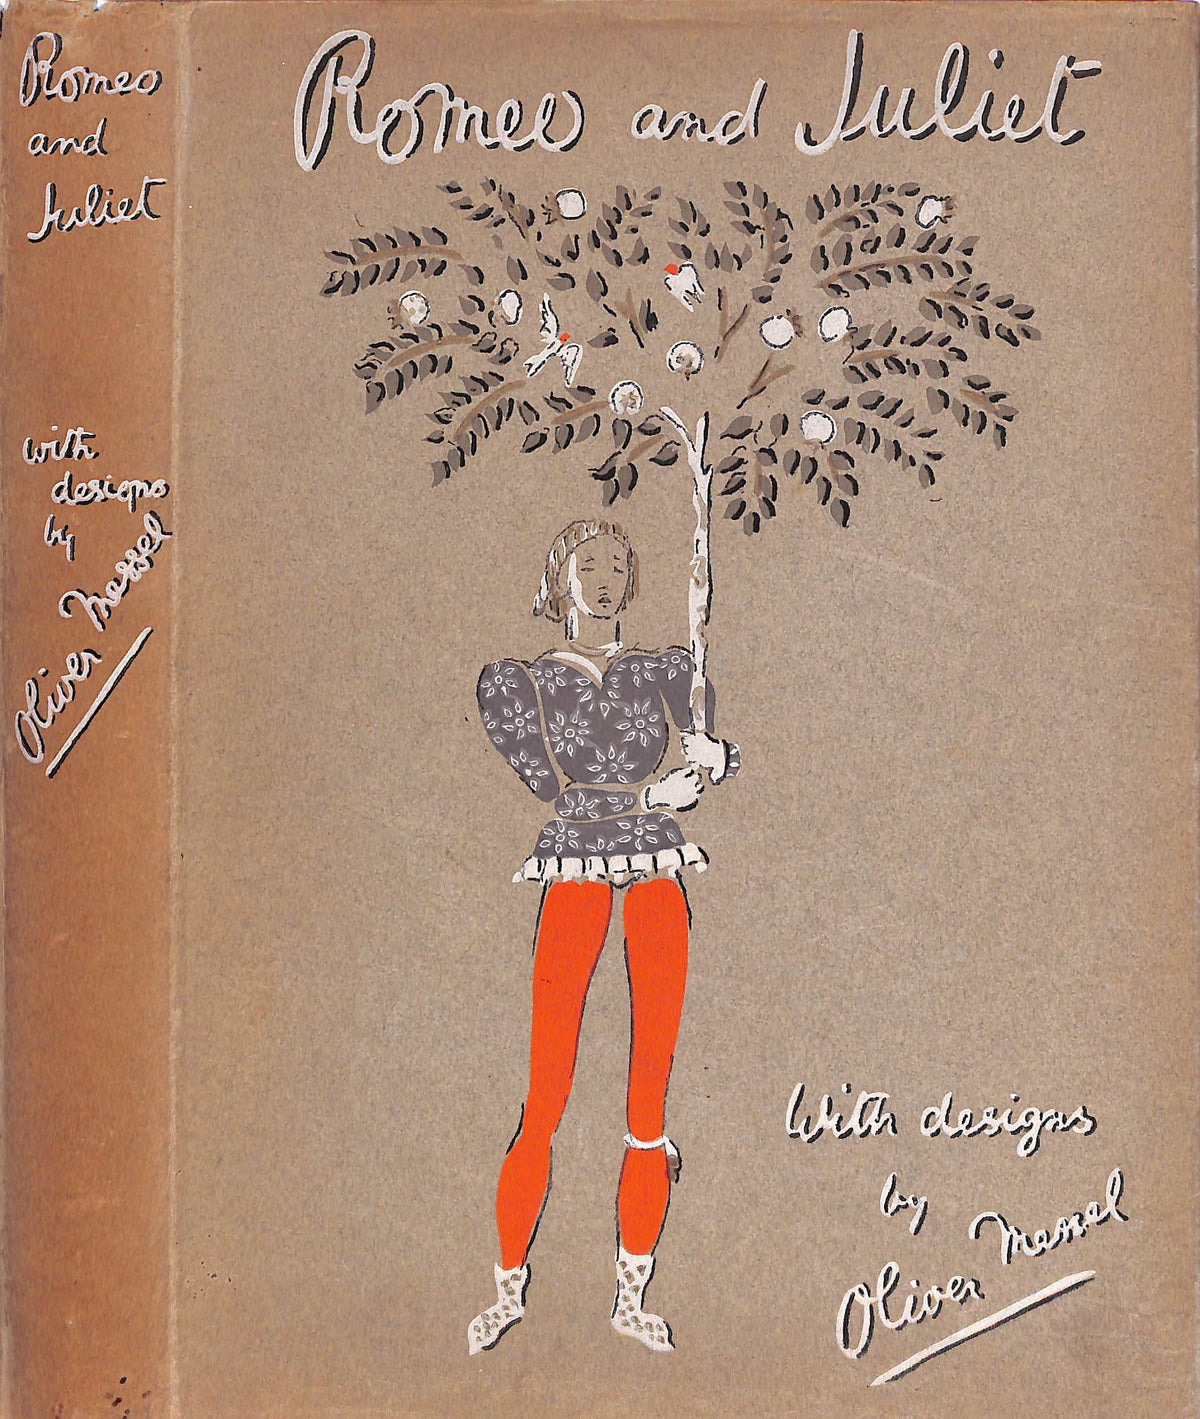 Romeo
and
Juliet
with
designs
by
Oliver Messel
Romeo and Juliet
With designs
by
Oliver Messel